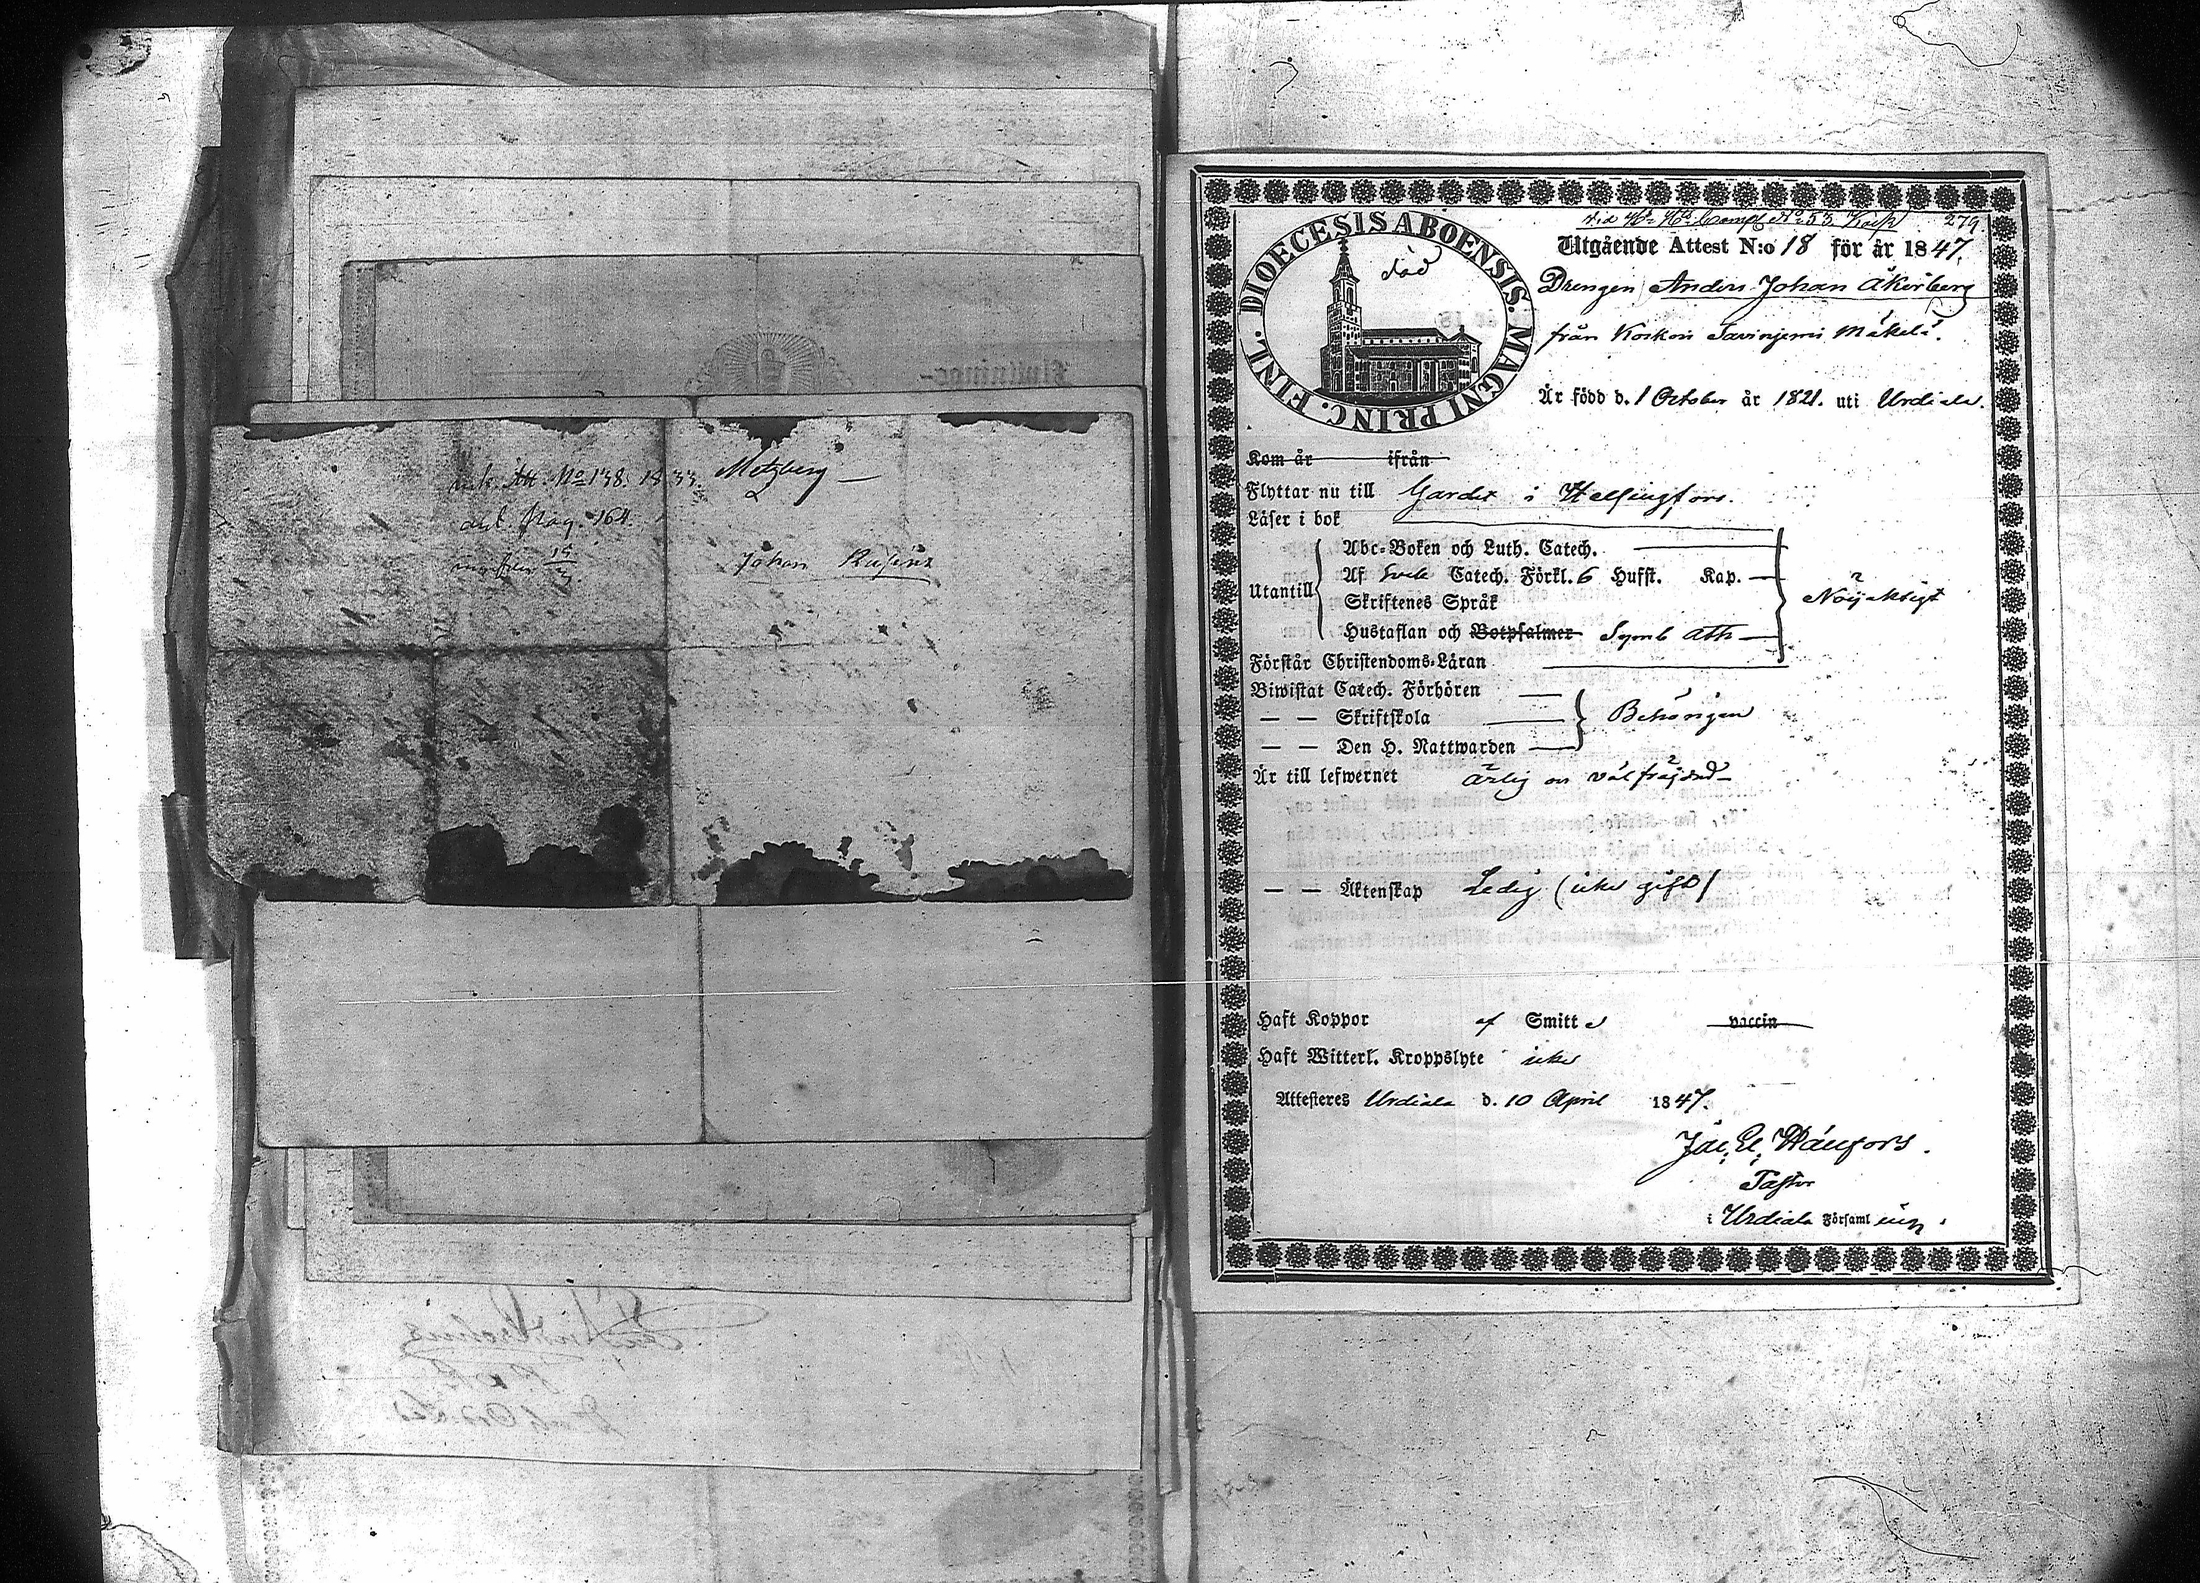 ink. Att. No 138. 1833. Metzberg
pag. 164.
Johan
279
DIOECESIS ABOENSIS. MAGNI PRINC. FINL.
död
Utgående Attest N:o 18 för år 1847.
Drengen Anders Johan Åkerberg
från Koskois Mäkelä.
Är född d. 1 October år 1821. uti Urdiala.
Kom år ifrån
Flyttar nu till Gardet i Helsingfors.
Läser i bok
Utantill
Abc-Boken och Luth. Catech.
Af Catech. Förkl. 6 Hufst. Kap.
Nöijaktigt
Skriftenes Språk
Hustaflan och Botpsalmer Symb Ath
Förstår Christendoms-Läran
Biwistat Catech. Förhören
— — Skriftskola
Behörigen
— — Den H. Nattwarden
Är till lefwernet ärlig och välfräjdad
— — Äktenskap Ledig (icke gift)
Haft Koppor af Smitta vaccin
Haft Witterl. Kroppslyte icke
Attesteres Urdiala d. 10 April 1847.
Pastor
i Urdiala Församling.